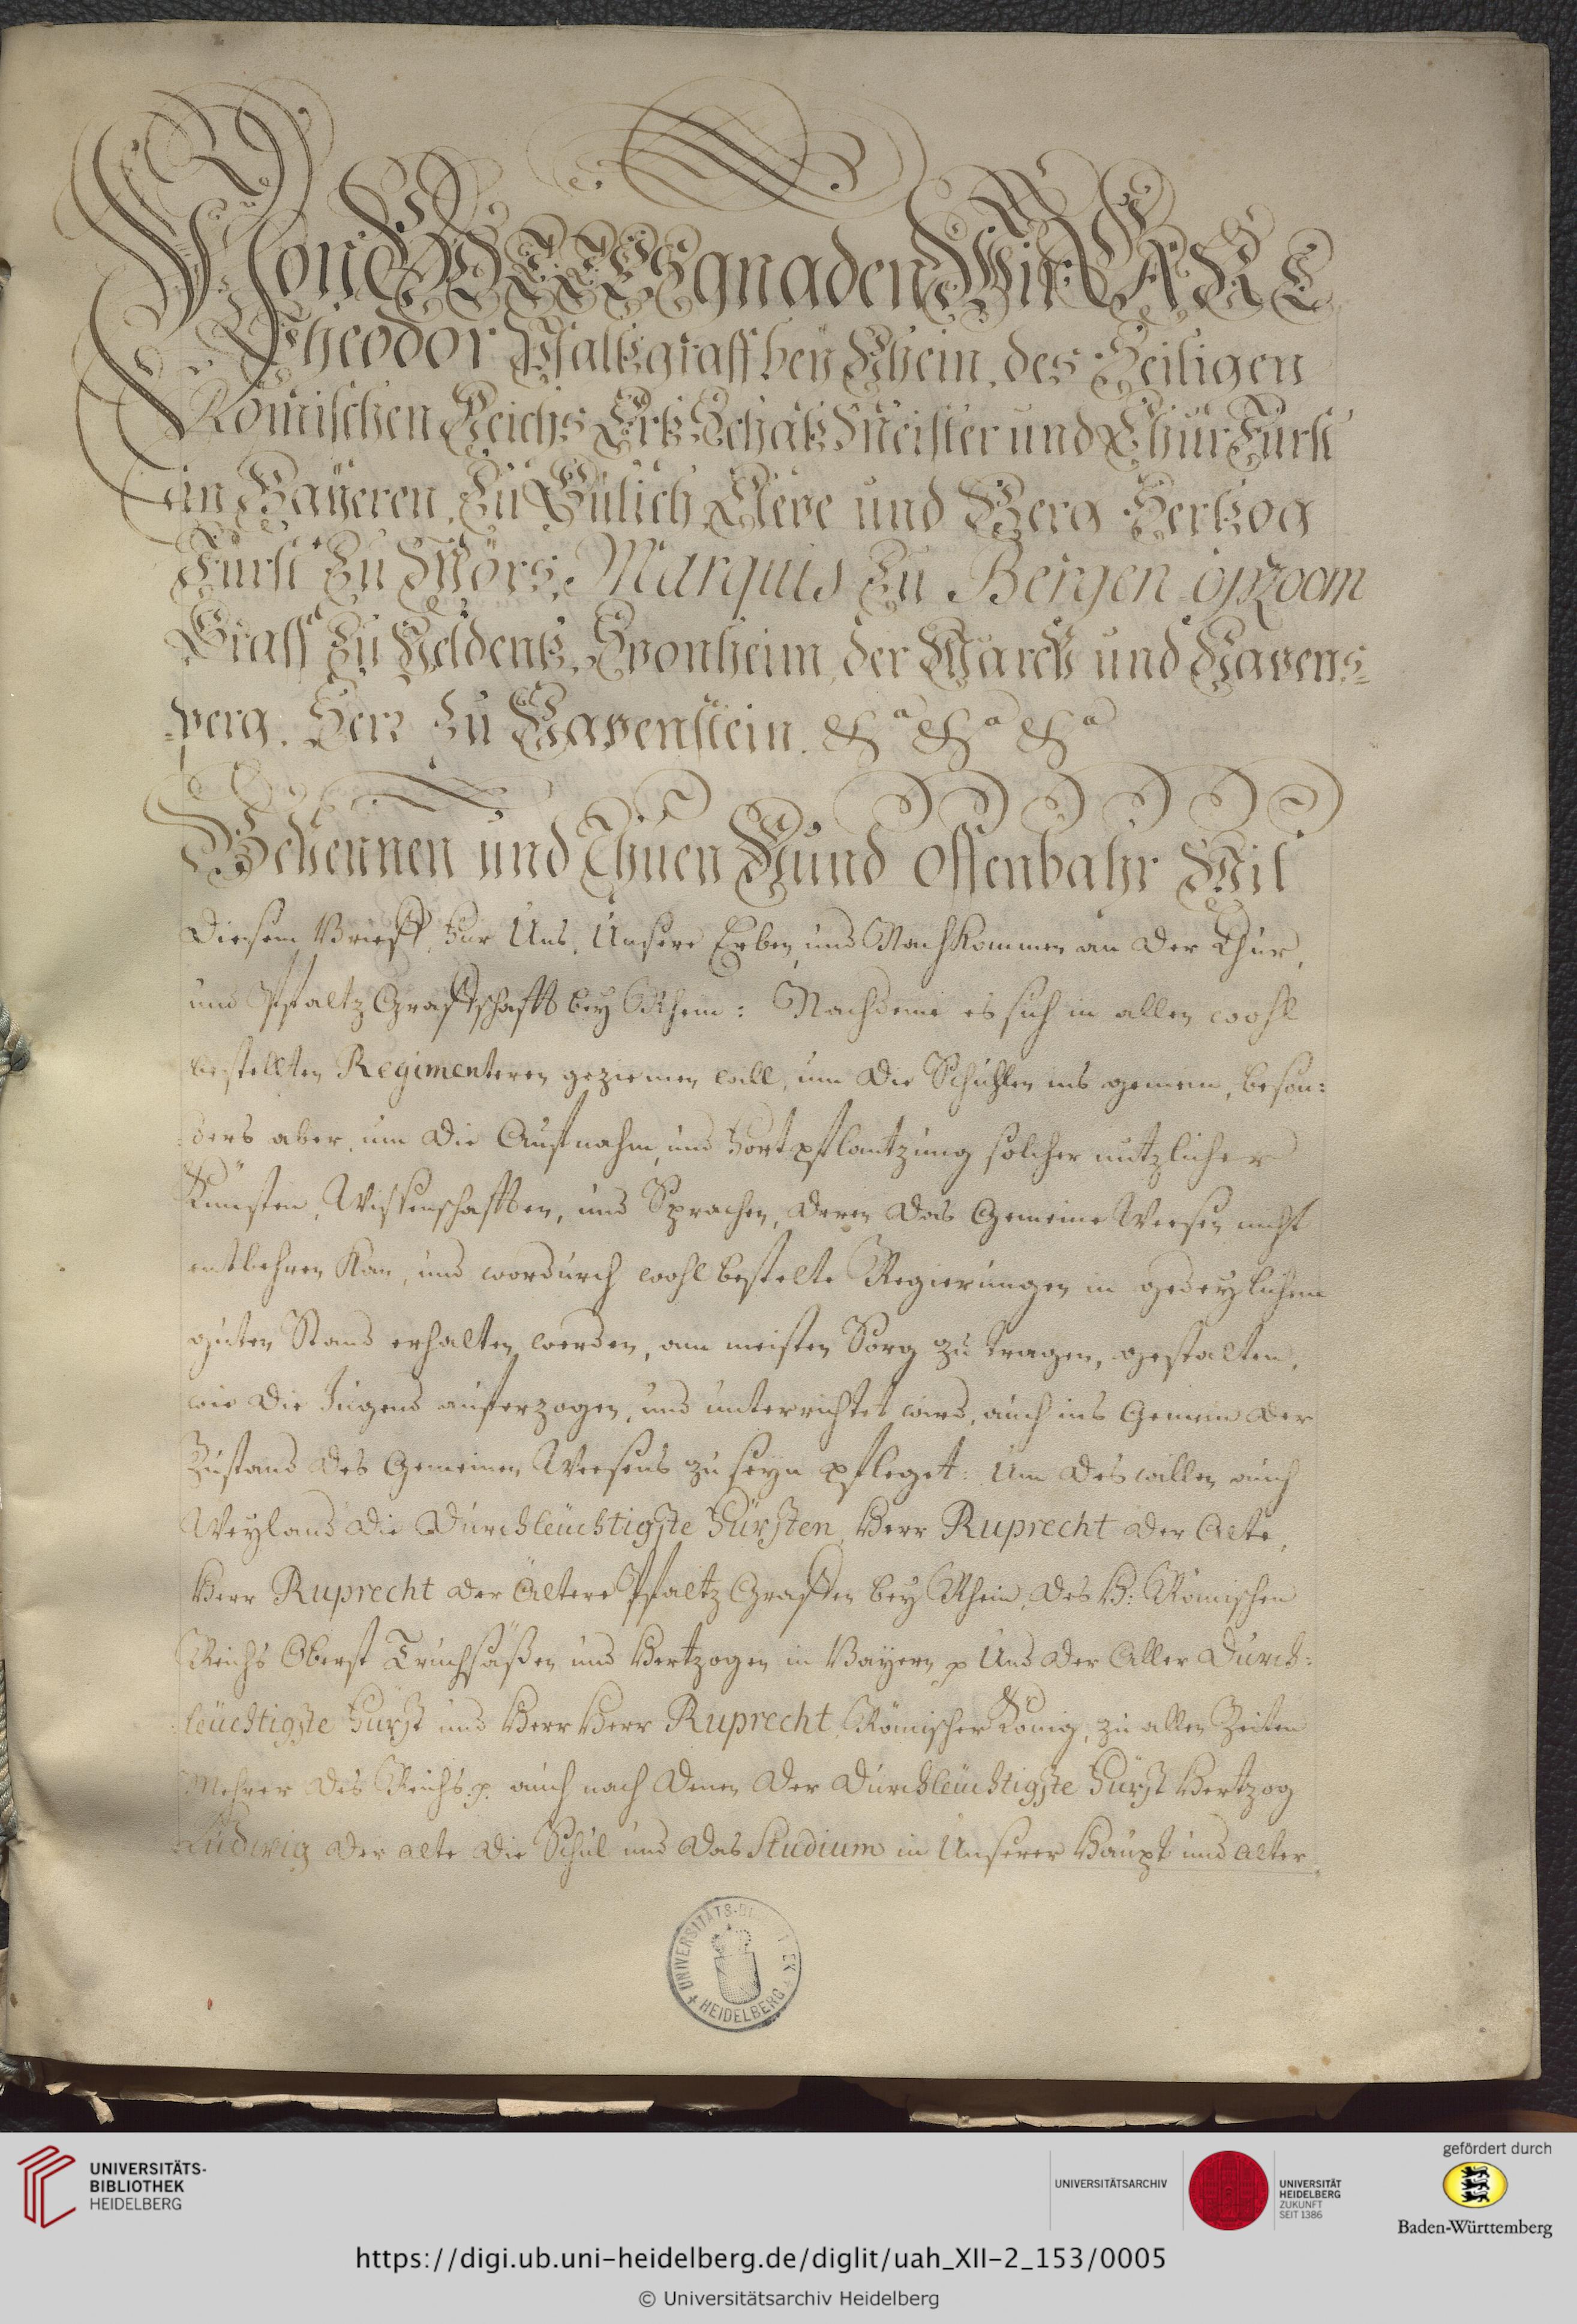 Von GOTTES gnaden Wir CARL
Theodor Pfaltzgraff bey Rhein, des Heiligen
Römischen Reichs Ertz Schatz Meister und Chur Fürst
in Bayeren, Zu Gülich, Cleve und Berg Hertzog
Fürst Zu Mörs, Marquis Zu Bergen opzoom
Graff Zu Veldentz, Sponheim, der Marck und Ravens=
=perg, Herr Zu Ravenstein. &a &a &a
Bekennen und Thuen Kund offenbahr Mit
diesem Brieff, Fur Uns, Unsere Erben, und Nachkommen an der Chur,
und Pfaltz Graffschafft bey Rhein: Nachdeme es sich in allen wohl
bestellten Regimenteren geziemen will, um die Schuhlen ins gemein, beson:
:ders aber, um die Aufnahm, und Fortpflantzung solcher nutzlicher
Künsten, Wissenschafften, und Sprachen, deren das Gemeine Weesen nicht
entbehren kan, und wordurch wohl bestelte Regierungen in gedeylichem
guten Stand erhalten werden, am meisten Sorg zu tragen, gestalten,
wie die Jugend auferzogen, und unterrichtet wird, auch ins Gemein der
Zustand des Gemeinen Weesens zu seyn pfleget: Um deswillen auch
Weyland die Durchleüchtigste Fürsten, Herr Ruprecht der Alte,
Herr Ruprecht der Ältere Pfaltz Graffen bey Rhein, des H: Römischen
Reichs Oberst Truchsäßen und Hertzogen in Bayern p Und der Aller Durch:
:leüchtigste Fürst und Herr Herr Ruprecht, Römischer König, zu allen Zeiten
Mehrer des Reichs p. auch nach denen der Durchleüchtigste Fürst Hertzog
Ludwig der alte die Schul und das Studium in Unserer Haupt und alter
UNIVERSITÄTS-
HEIDELBERG
UNIVERSITÄTS-
BIBLIOTHEK
HEIDELBERG
UNIVERSITÄTSARCHIV
UNIVERSITÄT
HEIDELBERG
ZUKUNFT
SEIT 1386
gefördert durch
Baden-Württemberg
https://digi.ub.uni-heidelberg.de/diglit/uah_XII-2_153/0005
© Universitätsarchiv Heidelberg